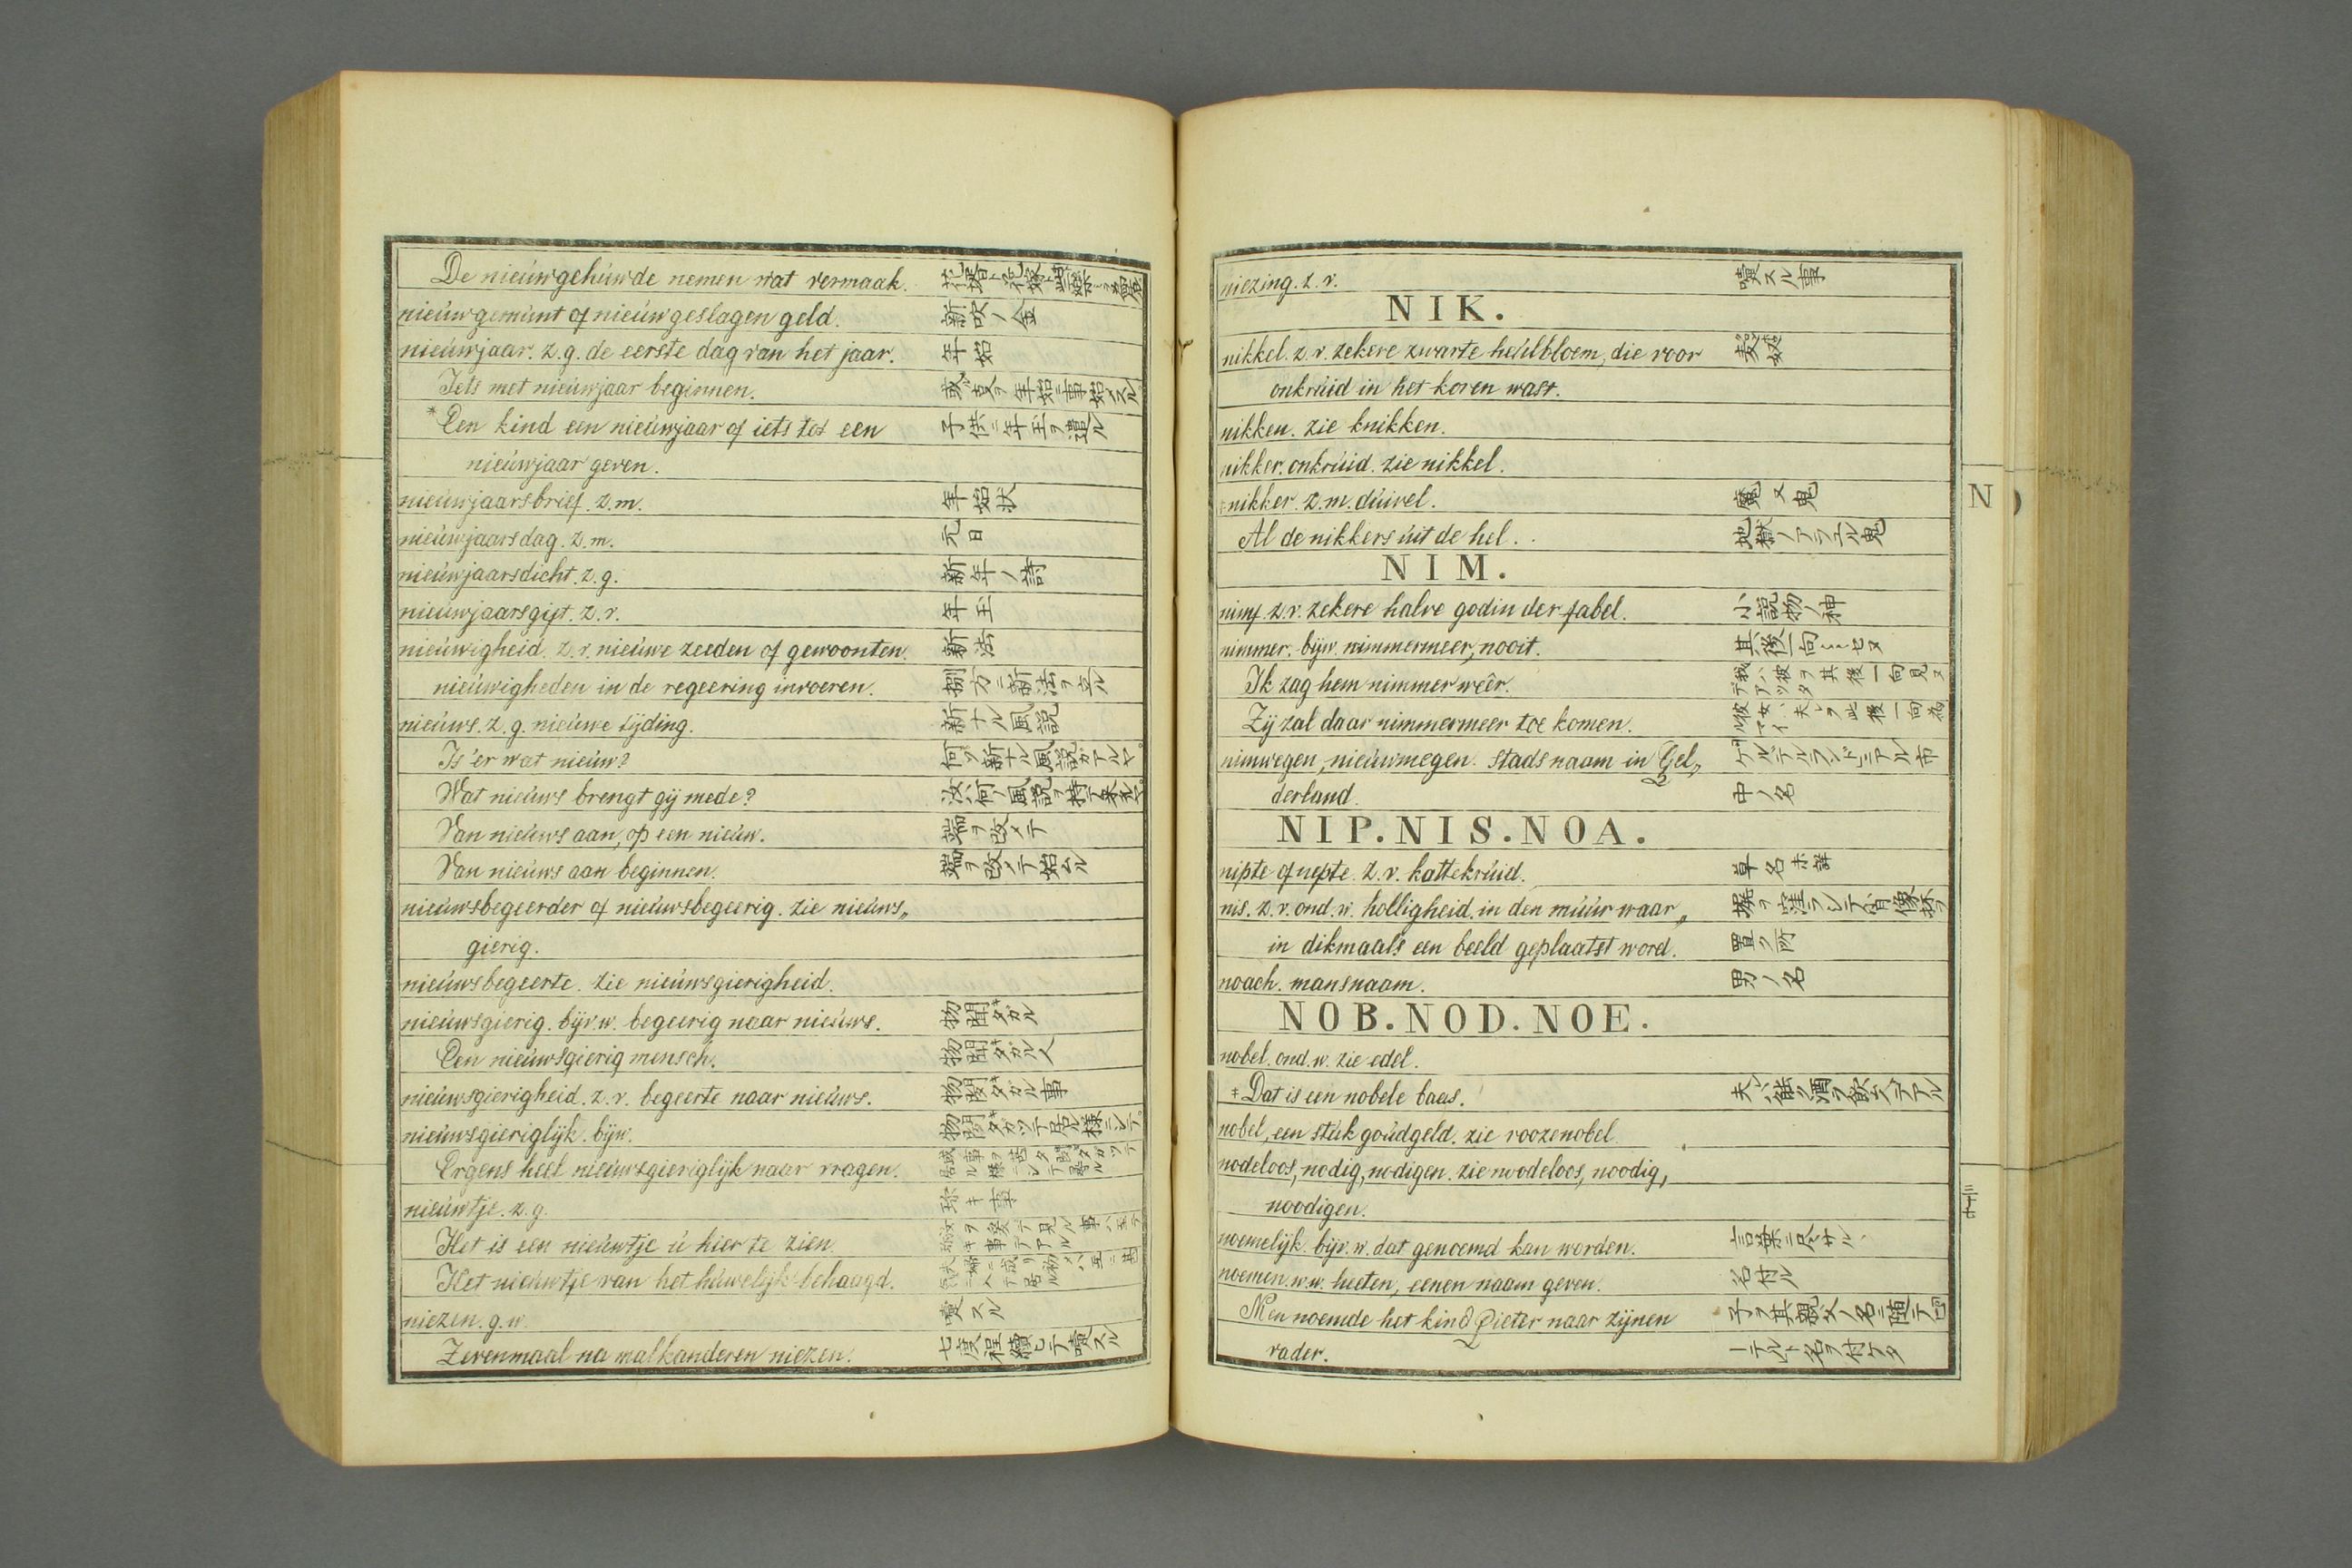 De nieúwgehúwde nemen wat vermaak.
nieúwgemúnt of nieúwgeslagen geld. 新吹ノ金
nieúwjaar. z.g. de eerste dag van het jaar. 年始
Iets met nieúwjaar beginnen. 或㕝ヲ年始ニ事始メスル
*Een kind een nieúwjaar of iets tot een 子供ニ年玉ヲ遣ル
nieúwjaar geven.
nieúwjaarsbrief. z.m. 年始状
nieúwjaarsdag. z.m. 元日
nieúwjaarsdicht. z.g. 新年ノ詩
nieúwjaarsgift. z.v. 年玉
nieúwigheid. z.v. nieúwe zeeden of gewoonten. 新法
nieúwigheden in de regeering invoeren. 捌方ニ新法ヲ立ル
nieúws. z.g. nieúwe tijding. 新ナル風説
Is 'er wat nieúw? 何ゾ新ナル風説ガアルヤ
Wat nieúws brengt gij mede? 汝何ノ風説ヲ持テ来タ
Van nieúws aan, op een nieúw. 端ヲ改メテ
Van nieúws aan beginnen. 端ヲ改メテ始ムル
nieúwsbegeerder of nieúwsbegeerig. zie nieúws„
gierig.
nieúwsbegeerte. zie nieúwsgierigheid.
nieúwsgierig. bijv.w. begeerig naar nieúws. 物聞タガル
Een nieúwsgierig mensch. 物聞タガル人
nieúwsgierigheid. z.v. begeerte naar nieúws. 物聞タガル事
nieúwsgieriglijk. bijw. 物聞タガツテ居ル様ニシテ
Ergens heel nieúwsgieriglijk naar vragen.
nieúwtje. z.g. 珍キ事
Het is een nieúwtje ú hier te zien.
Het nieúwtje van het húwelijk behaagd.
niezen. g.w. 嚏スル
Zevenmaal na malkanderen niezen. 七度程續ヒテ嚏スル
niezing. z.v. 嚏スル事
NIK.
nikkel. z.v. zekere zwarte heúlbloem, die voor
onkrúid in het koren wast.
nikken. zie knikken.
nikker. onkrúid. zie nikkel.
nikker. z.m. dúivel. 魔又鬼
Al de nikkers úit de hel. 地獄ノアラユル鬼
NIM.
nimf. z.v. zekere halve godin der fabel. 小説物ノ神
nimmer. bijw. nimmermeer, nooit. 其後一向……セヌ
Ik zag hem nimmer weêr. 我ハ彼ヲ其後一向見ヌデアツタ
Zij zal daar nimmermeer toe komen.
nimwegen, nieúwmegen. stads naam in Gel„ ゲルデルランドニアル市
derland. 中ノ名
NIP. NIS. NOA.
nipte of nepte. z.v. kattekrúid. 草名未詳
nis. z.v. ond.w. holligheid. in den múúr waar„
in dikmaals een beeld geplaatst word. 置ク所
noach. mansnaam. 男ノ名
NOB. NOD. NOE.
nobel. ond.w. zie edel.
‡Dat is een nobele baas. 夫ハ能ク酒ヲ飲ム人デアル
nobel, een stúk goúdgeld. zie roozenobel.
nodeloos, nodig, nodigen. zie noodeloos, noodig,
noodigen.
noemelijk. bijv.w. dat genoemd kan worden. 言葉ニ尽サルヽ
noemen. w.w. heeten, eenen naam geven. 名付ル
Men noemde het kind Pieter naar zijnen 子ヲ其親父ノ名ニ随テピ
vader. ーテルト名ヲ付ケタ
N